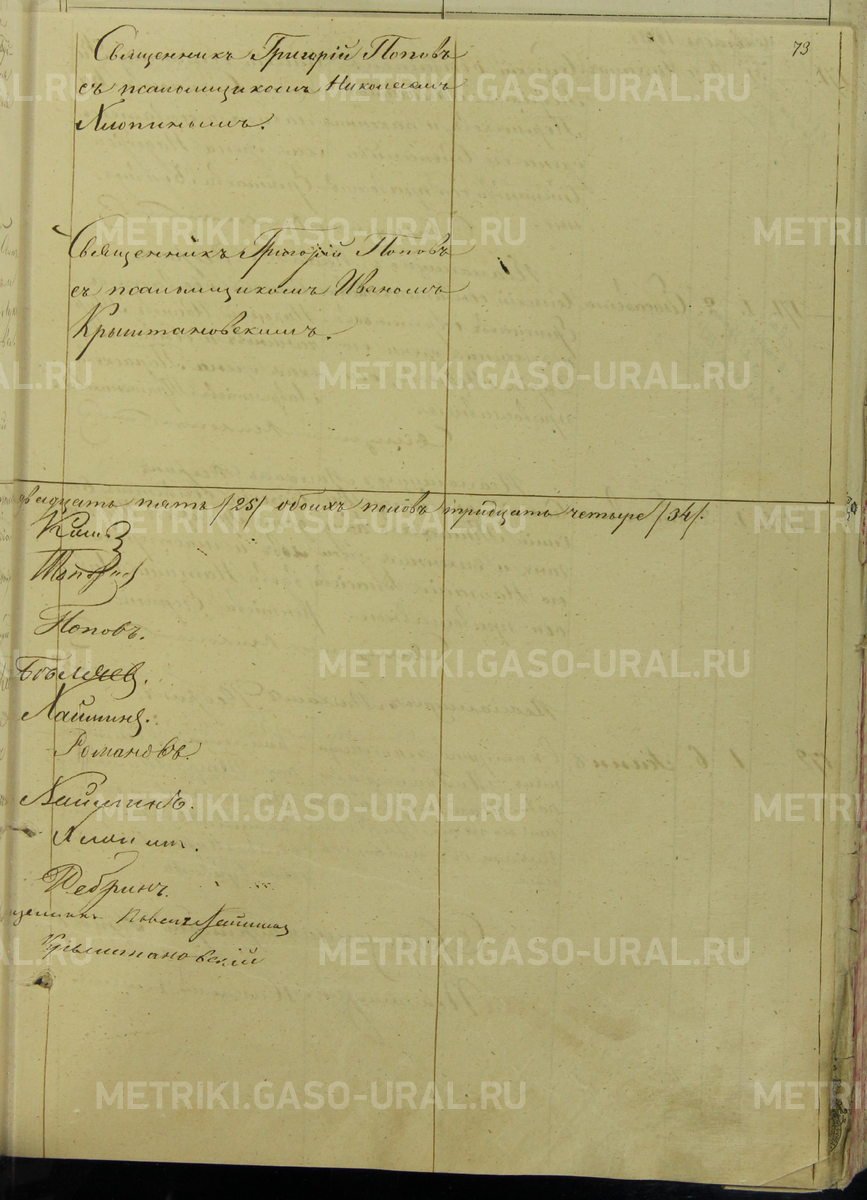 73
Священникъ Григорій Поповъ
съ псаломщикомъ Николаемъ
Хлопинымъ.
Священникъ Григорій Поповъ
съ псаломщикомъ Иваномъ
Крыштановскимъ.
двадцать пять /25/ обоихъ половъ тридцать четыре /34/.
Поповъ.
Романовъ.
Дебринъ.
Павелъ
Крыштановскій
METRIKI.GASO-URAL.RU